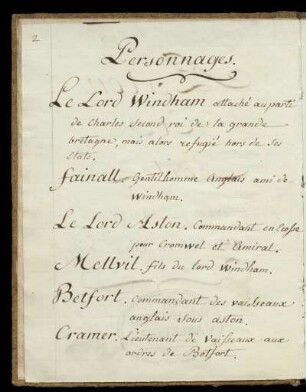 2
Personnages.
Le Lord Windham attaché au parti
de Charles second roi de la grande
bretagne, mais alors refugié hors de ses
états.
Fainall Gentilhomme Anglais ami de
Windham.
Le Lord Aston. Commandant en Ecosse
pour Cromwel et Amiral.
Mellvil. fils du lord Windham.
Betfort. Commandant des vaisseaux
anglais sous aston.
Cramer. Lieutenant de Vaisseaux aux
ordres de Betfort.